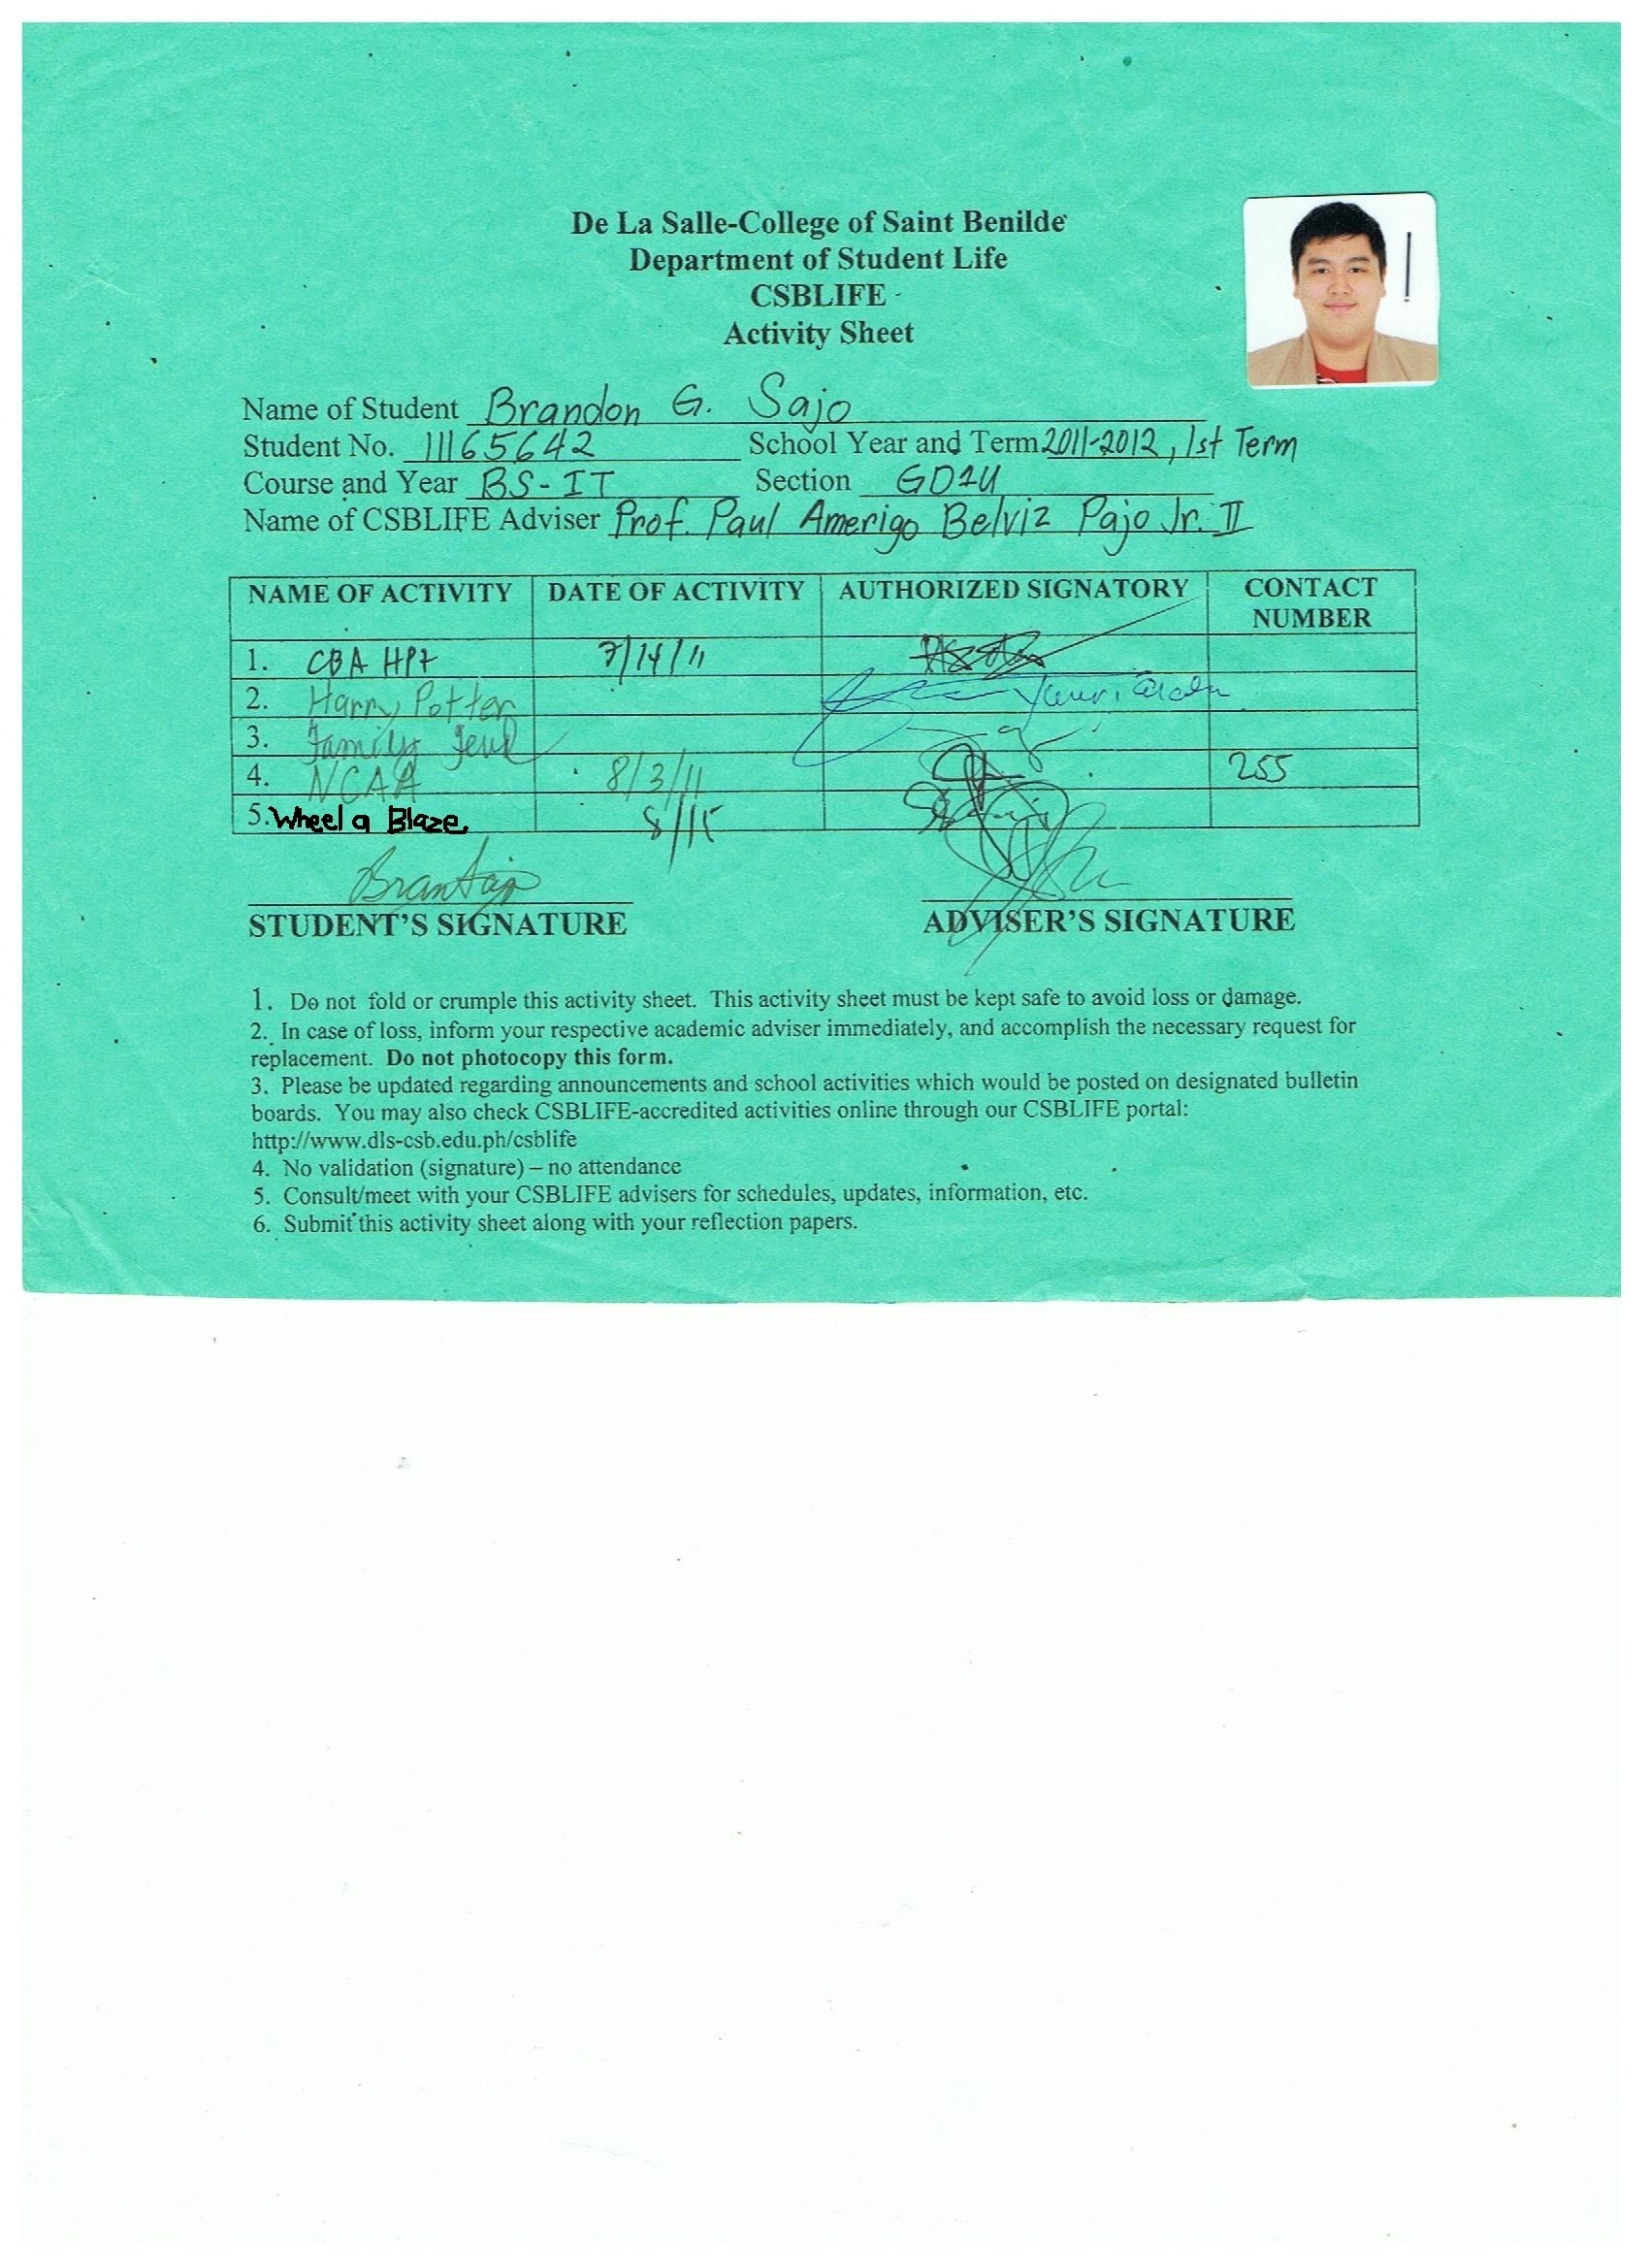 De La Salle-College of Saint Benilde
Department of Student Life
CSBLIFE
Activity Sheet
Name of Student Brandon G. Sajo
Student No. 11165642 School Year and Term 2011-2012, 1st Term
Course and Year BS-IT Section GD1U
Name of CSBLIFE Adviser Prof. Paul Amerigo Belviz Pajo Jr. II
NAME OF ACTIVITY DATE OF ACTIVITY AUTHORIZED SIGNATORY CONTACT NUMBER
1. CBA HP7 7/14/11
2. Harry Potter
3. Family Feud
4. NCAA 8/3/11 255
5. Wheel a Blaze 8/15
STUDENT'S SIGNATURE ADVISER'S SIGNATURE
1. Do not fold or crumple this activity sheet. This activity sheet must be kept safe to avoid loss or damage.
2. In case of loss, inform your respective academic adviser immediately, and accomplish the necessary request for
replacement. Do not photocopy this form.
3. Please be updated regarding announcements and school activities which would be posted on designated bulletin
boards. You may also check CSBLIFE-accredited activities online through our CSBLIFE portal:
http://www.dls-csb.edu.ph/csblife
4. No validation (signature) – no attendance
5. Consult/meet with your CSBLIFE advisers for schedules, updates, information, etc.
6. Submit this activity sheet along with your reflection papers.